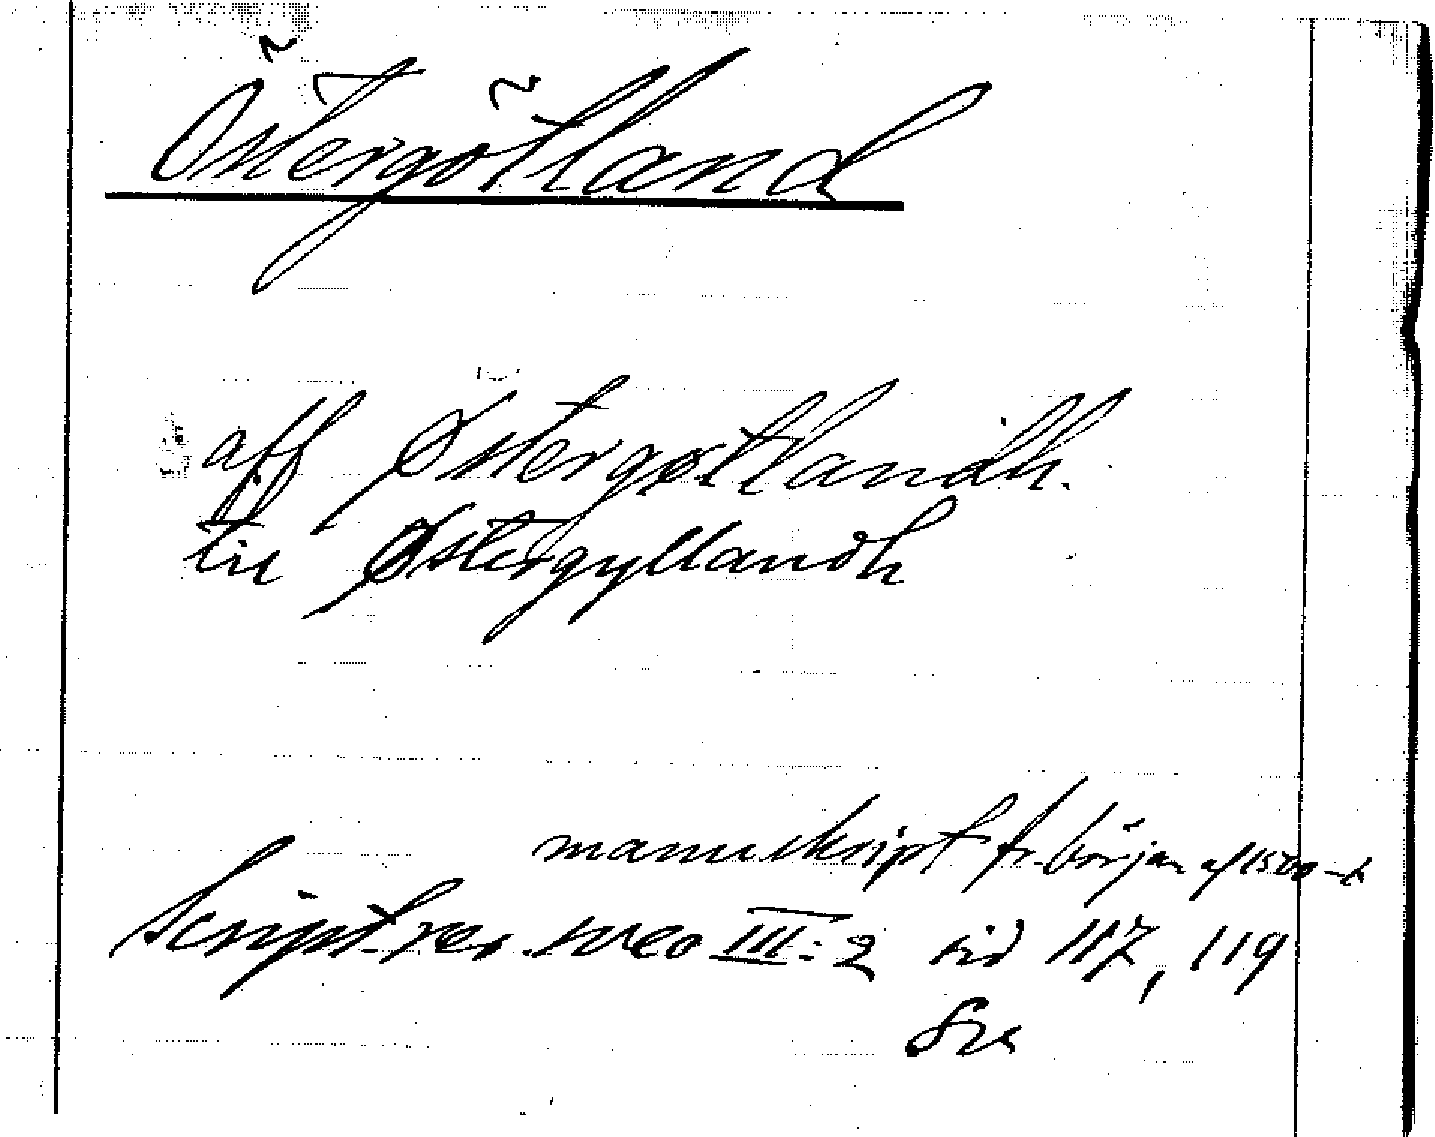 Östergötland
aff Østergøtlandh.
till Østergyllandh
manuskript fr. början af 1500-t
Script. rer. svec III:2 sid 117, 119